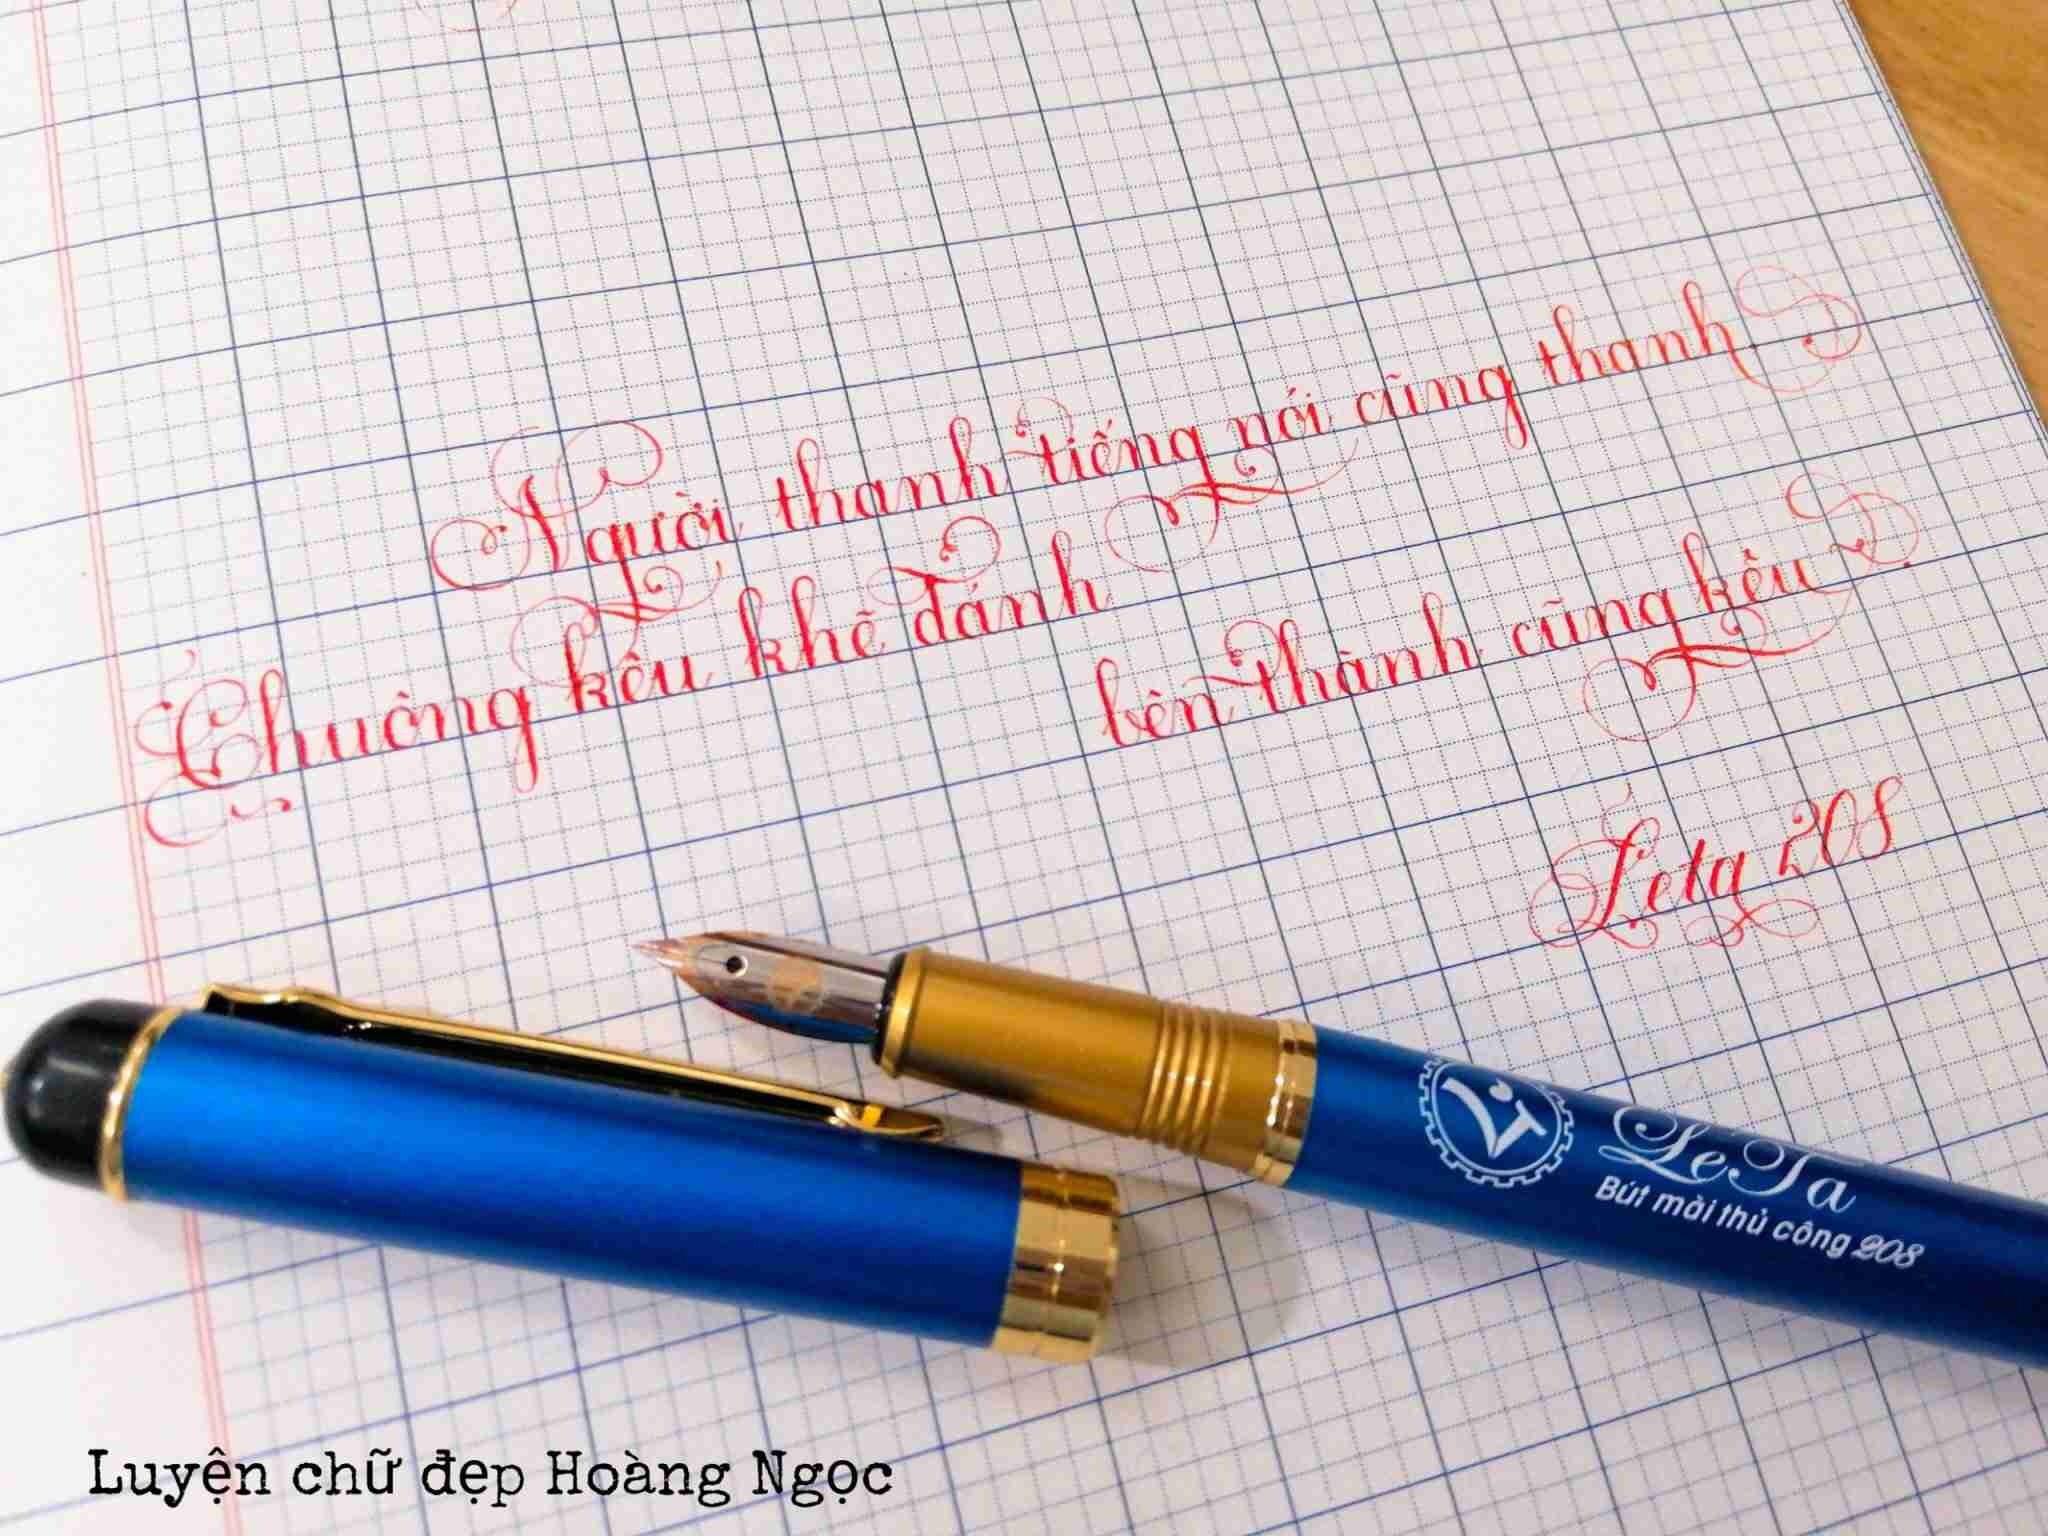 Người thanh tiếng nói cũng thanh
Chuông kêu khẽ đánh bên thành cũng kêu
Leta 208
LeTa
Bút mài thủ công 208
Luyện chữ đẹp Hoàng Ngọc